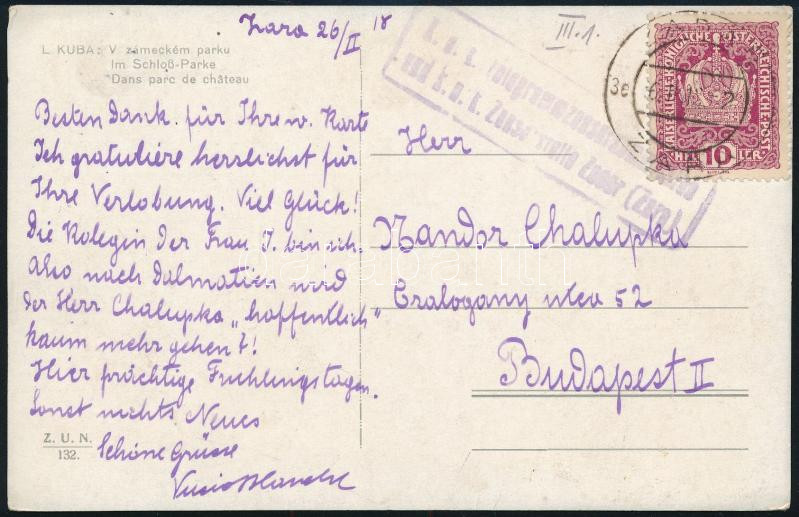 Zara 26/II 18
III.1.
L. KUBA: V zámeckém parku
Im Schloß-Parke
Dans parc de château
Besten Dank für Ihre w. Karte
Ich gratuliere herrlichst für
Ihre Verlobung. Viel Glück!
Die Kolegin der Frau J. bin ich.
Also nach Dalmatien wird
der Herr Chalupka „hoffentlich"
kaum mehr gehen?!
Hier prächtige Fruhlingstagen.
Sonst nichts Neues
Schöne Grüsse
Z. U. N.
132.
K. u. K.
und k. u. k. Zensurstelle Zadar (Zara)
KAISERLICHE KÖNIGLICHE ÖSTERREICHISCHE POST
10
ZARA
3e
Herr
Nandor Chalupka
Csalogany utca 52
Budapest II